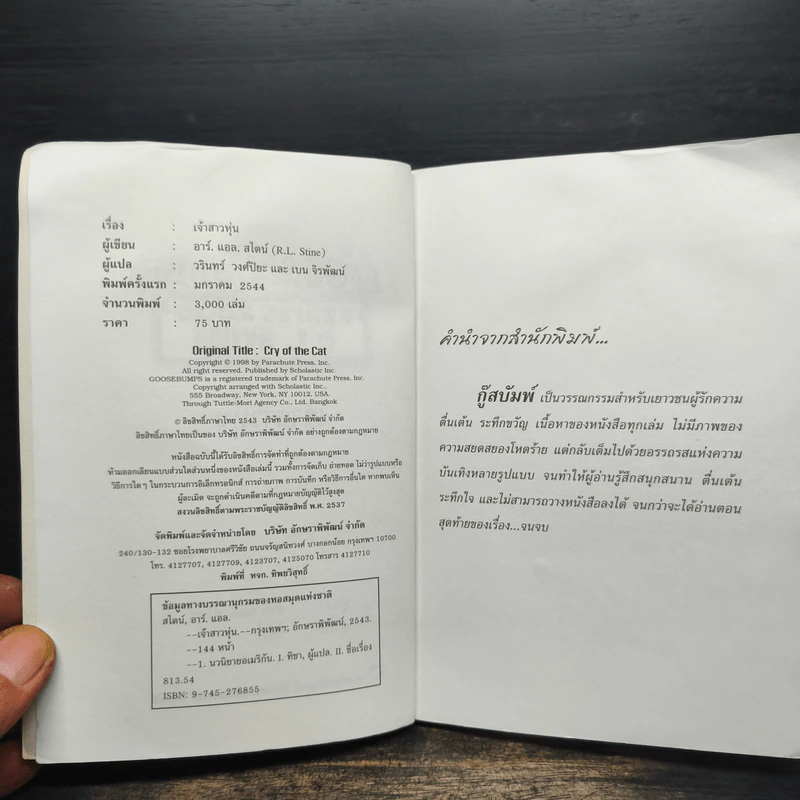 เรื่อง : เจ้าสาวหุ่น
ผู้เขียน : อาร์. แอล. สไตน์ (R.L. Stine)
ผู้แปล : วรินทร์ วงศ์ปิยะ และ เบน จิรพัฒน์
พิมพ์ครั้งแรก : มกราคม 2544
จำนวนพิมพ์ : 3,000 เล่ม
ราคา : 75 บาท
Original Title : Cry of the Cat
Copyright © 1998 by Parachute Press, Inc.
All right reserved. Published by Scholastic Inc.
GOOSEBUMPS is a registered trademark of Parachute Press, Inc.
Copyright arranged with Scholastic Inc.,
555 Broadway, New York, NY 10012, USA.
Through Tuttle-Mori Agency Co., Ltd. Bangkok
© ลิขสิทธิ์ภาษาไทย 2543 บริษัท อักษราพิพัฒน์ จำกัด
ลิขสิทธิ์ภาษาไทยเป็นของ บริษัท อักษราพิพัฒน์ จำกัด อย่างถูกต้องตามกฎหมาย
หนังสือฉบับนี้ได้รับลิขสิทธิ์การจัดทำที่ถูกต้องตามกฎหมาย
ห้ามลอกเลียนแบบส่วนใดส่วนหนึ่งของหนังสือเล่มนี้ รวมทั้งการจัดเก็บ ถ่ายทอด ไม่ว่ารูปแบบหรือ
วิธีการใด ๆ ในกระบวนการอิเล็กทรอนิกส์ การถ่ายภาพ การบันทึก หรือวิธีการอื่นใด หากพบเห็น
ผู้ละเมิด จะถูกดำเนินคดีตามที่กฎหมายบัญญัติไว้สูงสุด
สงวนลิขสิทธิ์ตามพระราชบัญญัติลิขสิทธิ์ พ.ศ. 2537
จัดพิมพ์และจัดจำหน่ายโดย บริษัท อักษราพิพัฒน์ จำกัด
240/130-132 ซอยโรงพยาบาลศรีวิชัย ถนนจรัญสนิทวงศ์ บางกอกน้อย กรุงเทพฯ 10700
โทร. 4127707, 4127709, 4123707, 4125070 โทรสาร 4127710
พิมพ์ที่ หจก. ทิพยวิสุทธิ์
ข้อมูลทางบรรณานุกรมของหอสมุดแห่งชาติ
สไตน์, อาร์. แอล.
--เจ้าสาวหุ่น.--กรุงเทพฯ; อักษราพิพัฒน์, 2543.
--144 หน้า
--1. นวนิยายอเมริกัน. I. ทิชา, ผู้แปล. II. ชื่อเรื่อง
813.54
ISBN: 9-745-276855
คำนำจากสำนักพิมพ์...
กู๊สบัมพ์ เป็นวรรณกรรมสำหรับเยาวชนผู้รักความ
ตื่นเต้น ระทึกขวัญ เนื้อหาของหนังสือทุกเล่ม ไม่มีภาพของ
ความสยดสยองโหดร้าย แต่กลับเต็มไปด้วยอรรถรสแห่งความ
บันเทิงหลายรูปแบบ จนทำให้ผู้อ่านรู้สึกสนุกสนาน ตื่นเต้น
ระทึกใจ และไม่สามารถวางหนังสือลงได้ จนกว่าจะได้อ่านตอน
สุดท้ายของเรื่อง...จนจบ